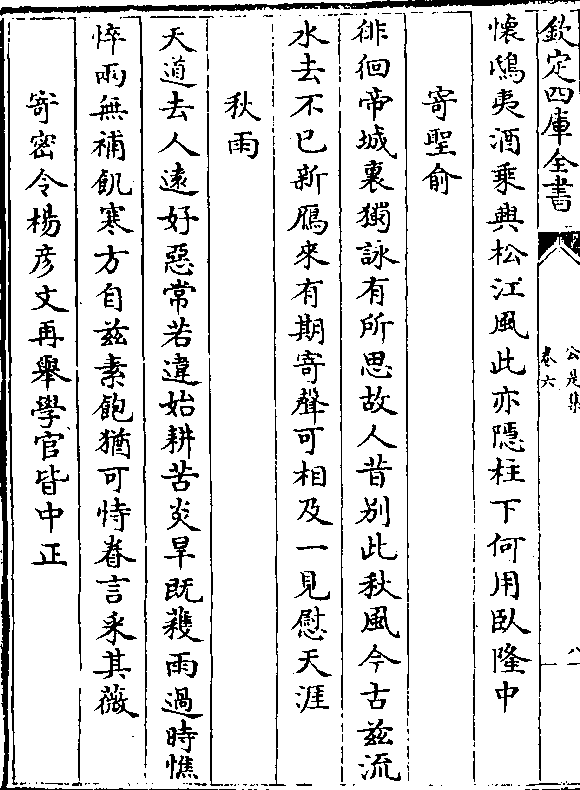 欽定四庫全書
公是集
卷六
八
懷鴟夷酒乘興松江風此亦隱柱下何用臥隆中
寄聖俞
徘徊帝城裏獨詠有所思故人昔別此秋風今古兹流
水去不已新鴈來有期寄聲可相及一見慰天涯
秋雨
天道去人遠好惡常若違始耕苦炎旱既穫雨過時憔
悴雨無補飢寒方自兹素飽猶可恃眷言采其薇
寄密令楊彥文再舉學官皆中正